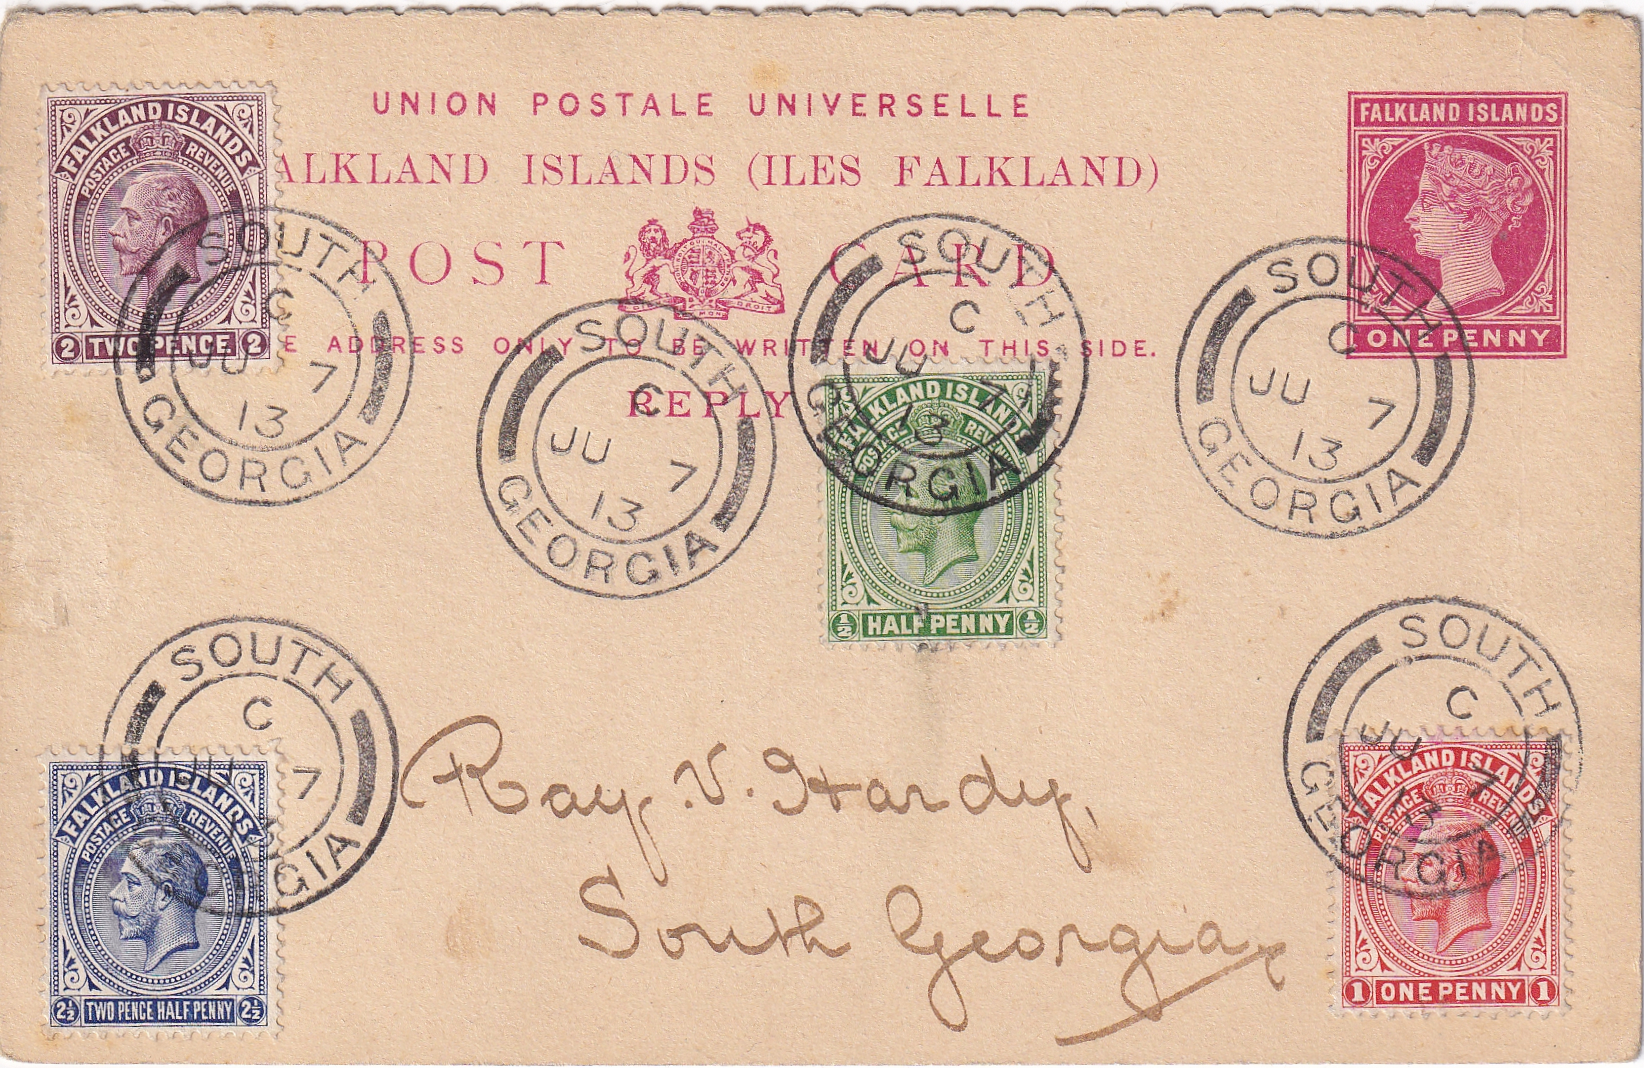 UNION POSTALE UNIVERSELLE
ALKLAND ISLANDS (ILES FALKLAND)
POST CARD
E ADDRESS ONLY TO BE WRITTEN ON THIS SIDE.
REPLY
FALKLAND ISLANDS
ONE PENNY
FALKLAND ISLANDS
POSTAGE REVENUE
2 TWO PENCE 2
SOUTH
C
JU 7
13
GEORGIA
SOUTH
C
JU 7
13
GEORGIA
SOUTH
C
JU 7
13
GEORGIA
FALKLAND ISLANDS
POSTAGE REVENUE
½ HALF PENNY ½
SOUTH
C
JU 7
13
GEORGIA
SOUTH
C
JU 7
GEORGIA
FALKLAND ISLANDS
POSTAGE REVENUE
2½ TWO PENCE HALF PENNY 2½
Ray. V. Hardy,
South Georgia
SOUTH
C
JU 7
13
GEORGIA
FALKLAND ISLANDS
POSTAGE REVENUE
1 ONE PENNY 1